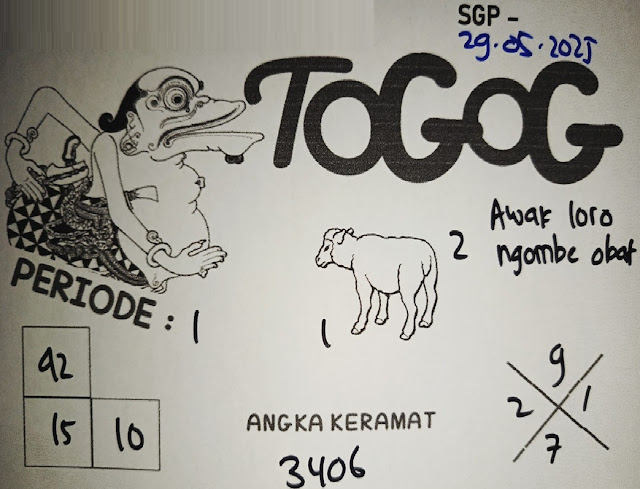 SGP -
29.05.2025
TOGOG
Awak loro
2
ngombe obat
PERIODE : 1
1
42
15 10
ANGKA KERAMAT
3406
9
2 1
7